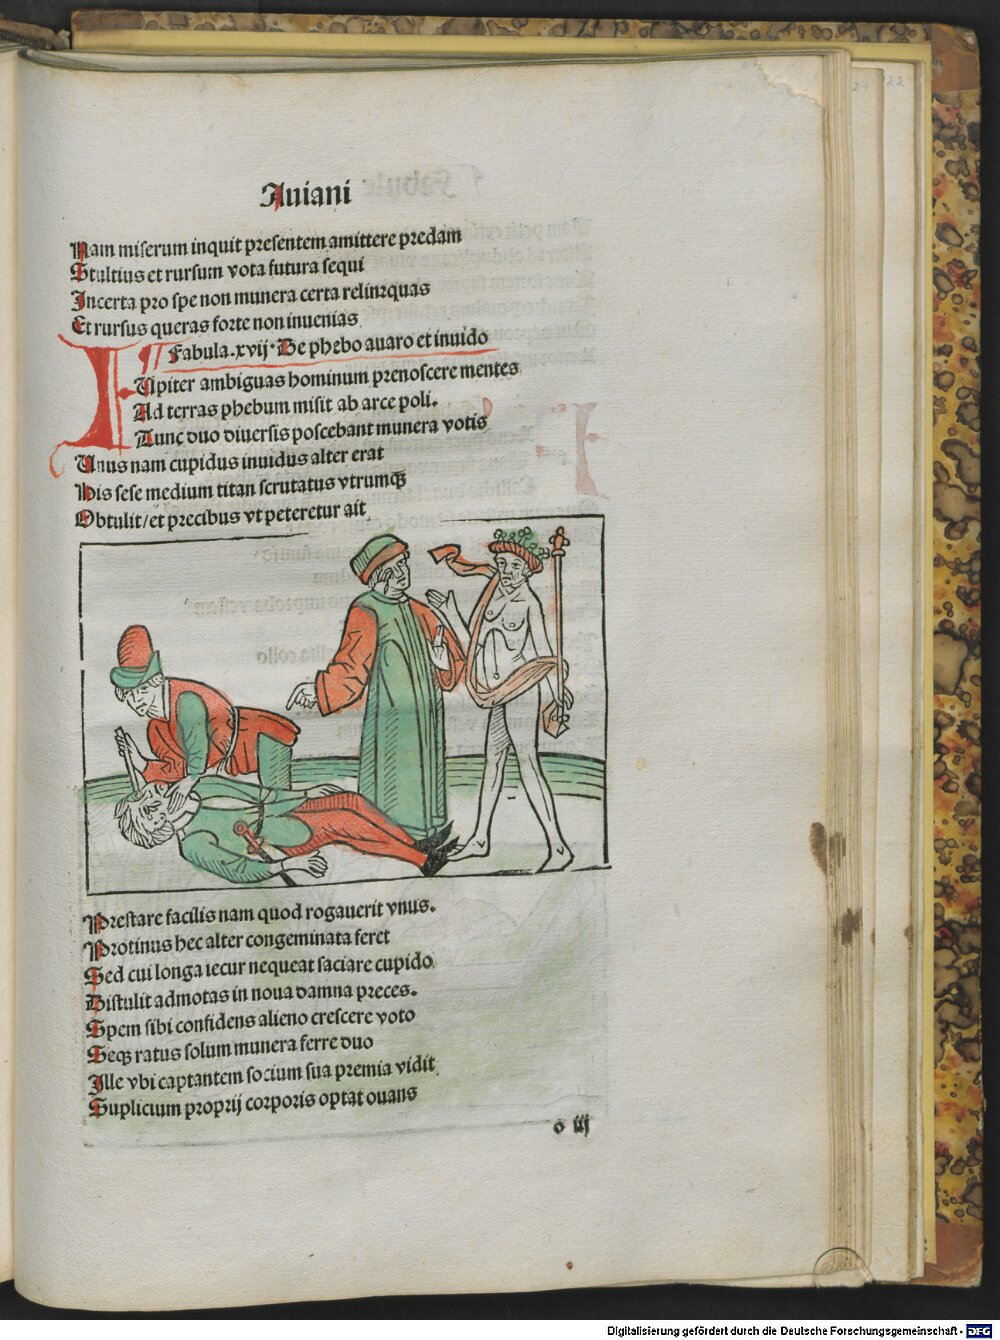 Auiani
Nam miserum inquit presentem amittere predam
Stultius et rursum vota futura sequi
Incerta pro spe non munera certa relinzquas
Et rursus queras forte non inuenias
¶ Fabula .xvij. De phebo auaro et inuido
IVpiter ambiguas hominum prenoscere mentes
Ad terras phebum misit ab arce poli.
Tunc duo diuersis poscebant munera votis
Unus nam cupidus inuidus alter erat
His sese medium titan scrutatus vtrumqꝫ
Obtulit/et precibus vt peteretur ait
Prestare facilis nam quod rogauerit vnus.
Protinus hec alter congeminata feret
Sed cui longa iecur nequeat saciare cupido
Distulit admotas in noua damna preces.
Spem sibi confidens alieno crescere voto
Seqꝫ ratus solum munera ferre duo
Ille vbi captantem socium sua premia vidit
Suplicium proprij corporis optat ouans
o iij
Digitalisierung gefördert durch die Deutsche Forschungsgemeinschaft - DFG